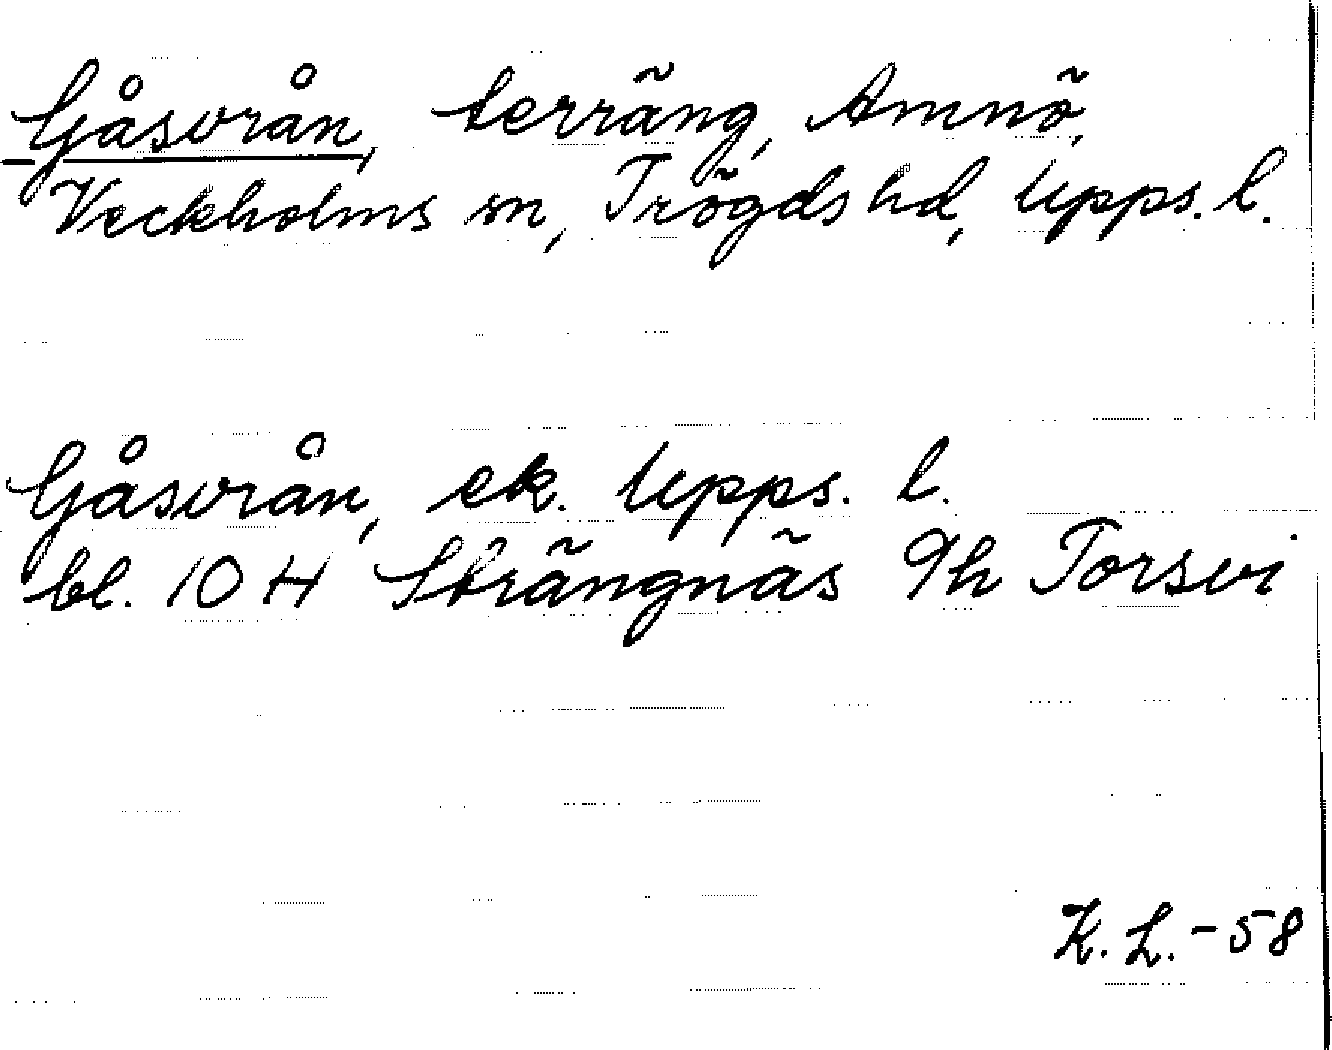 Gåsvrån, terräng, Amnö,
Veckholms sn, Trögds hd, Upps. l.
Gåsvrån, ek. Upps. l.
bl. 10 H Strängnäs 9h Torsvi
K. L. - 58